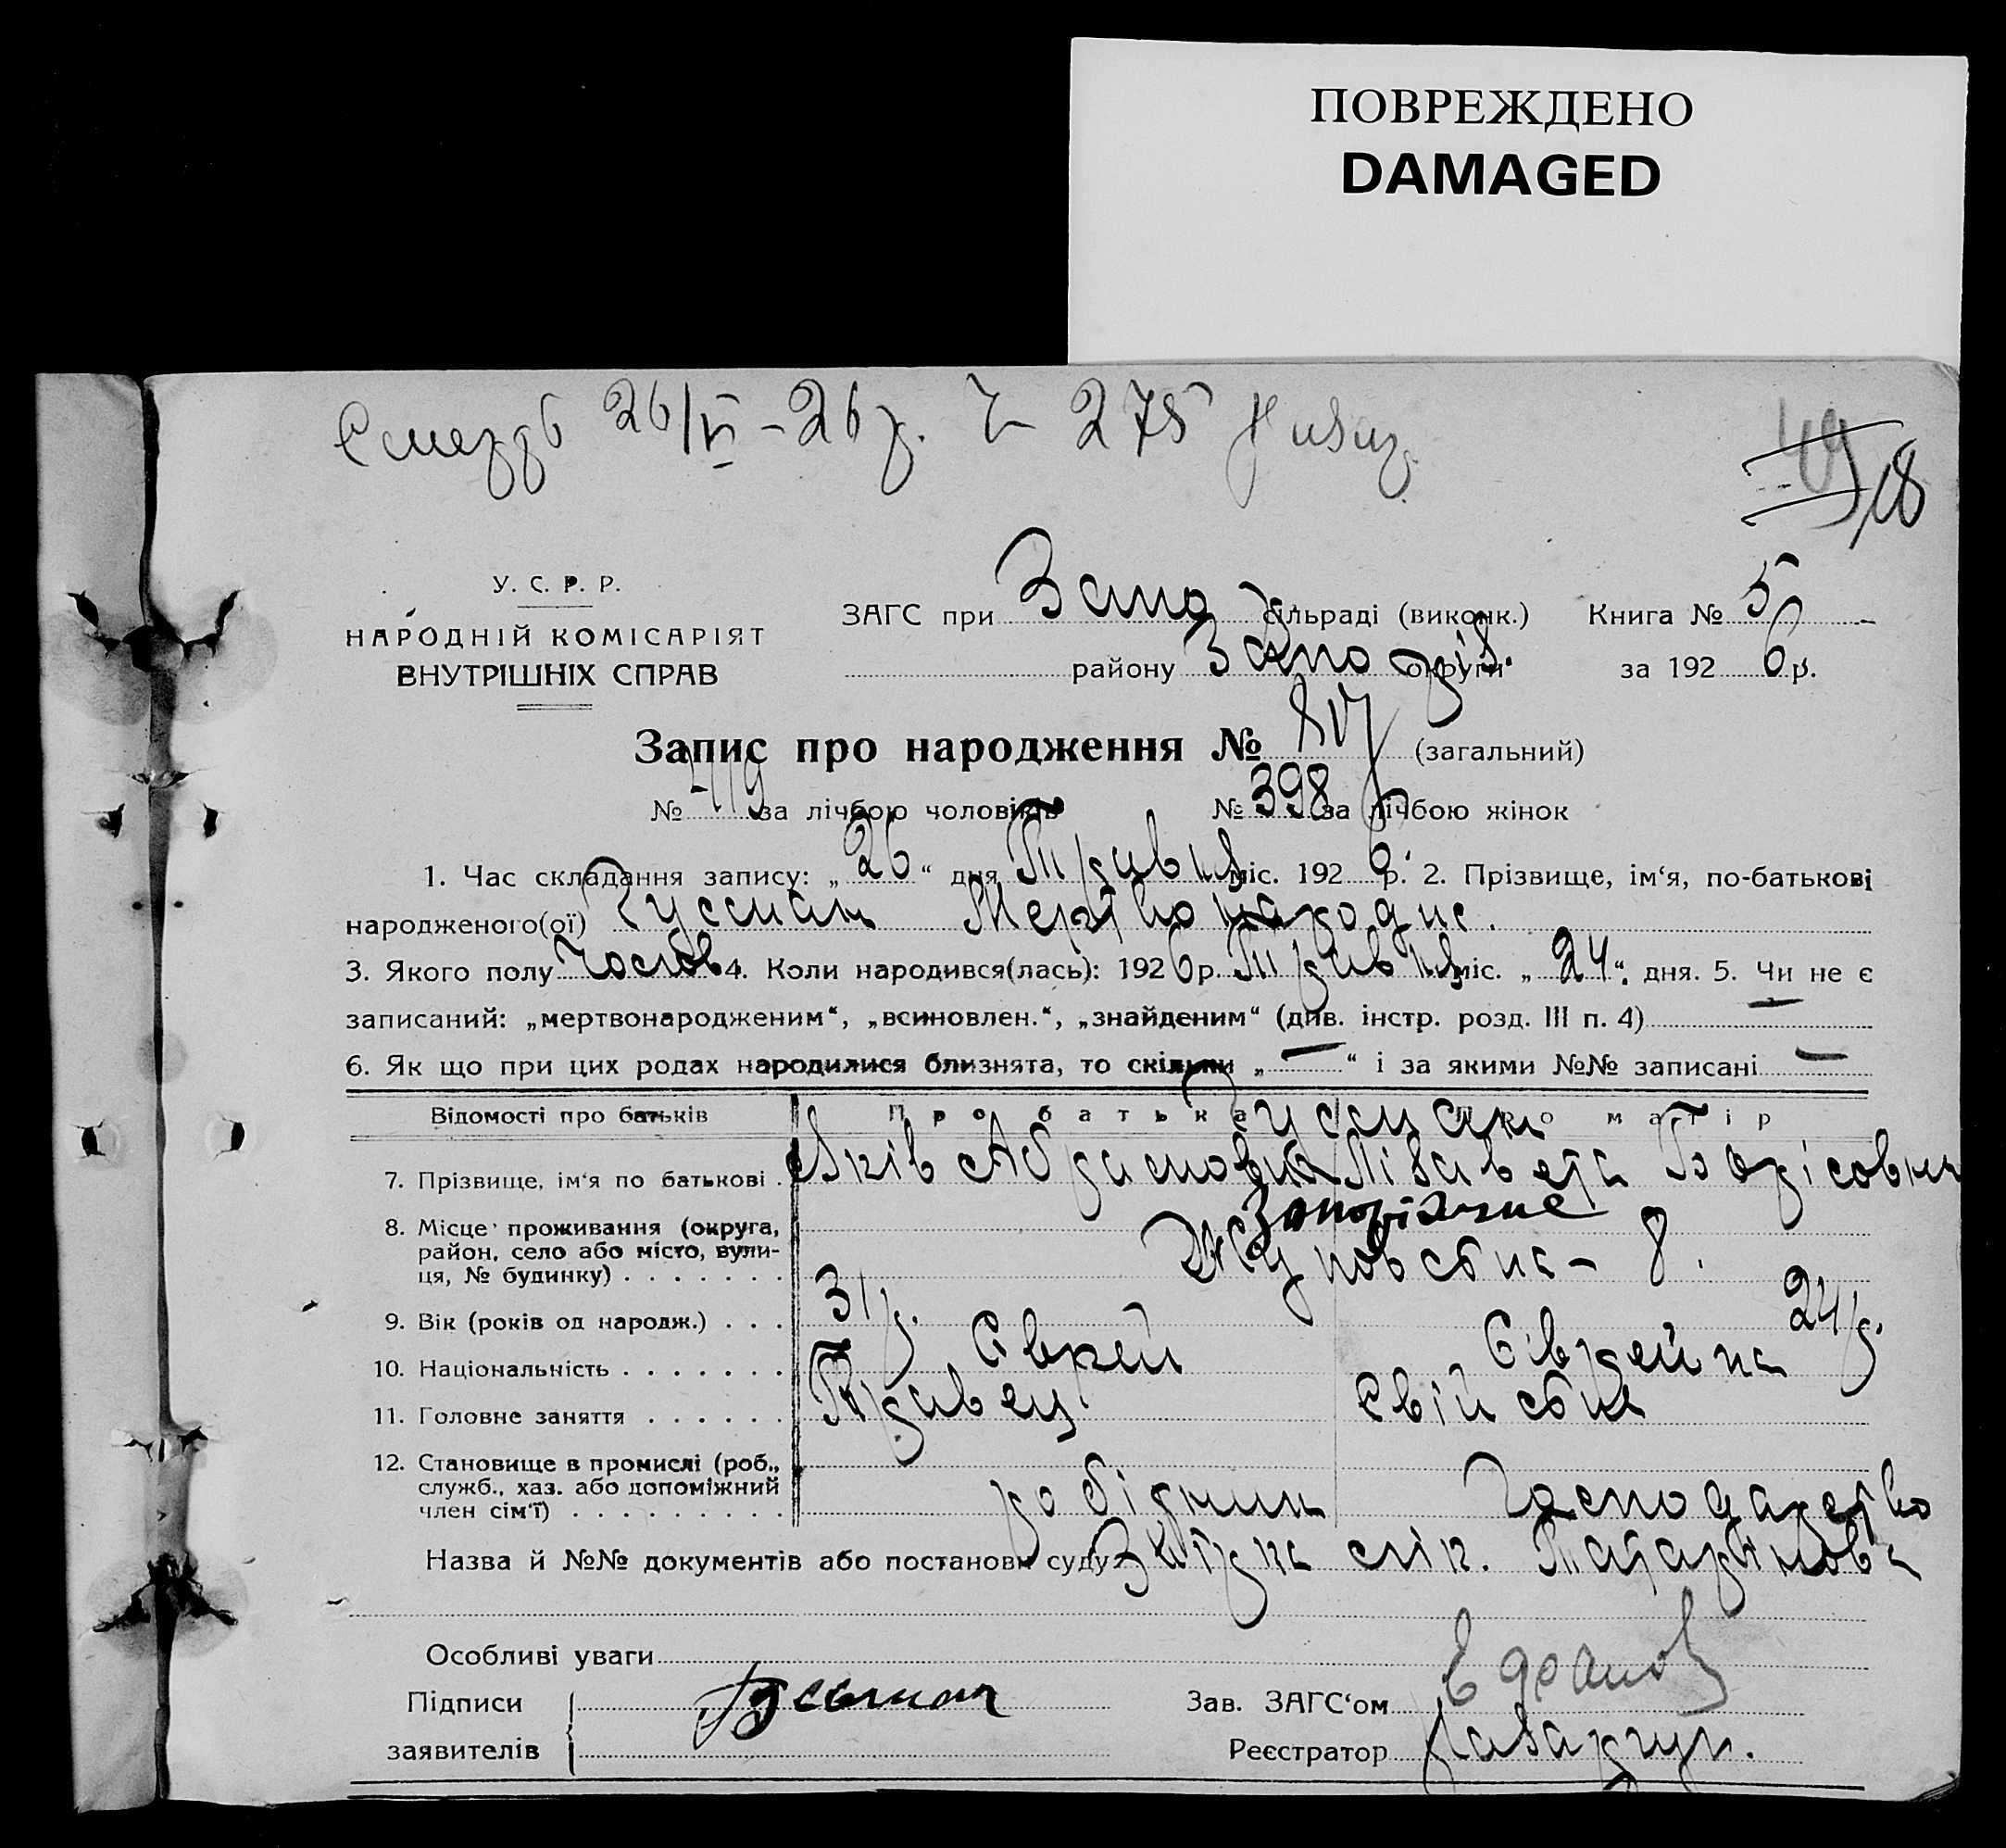 ПОВРЕЖДЕНО
DAMAGED
Смерть 26/VI – 26 р. Ч 275
49
18
У. С. Р. Р.
НАРОДНІЙ КОМІСАРІЯТ
ВНУТРІШНІХ СПРАВ
ЗАГС при Запо сільраді (виконк.) Книга № 5
району Запоріз. округи за 192 6 р.
Запис про народження № 817 (загальний)
№ 419 за лічбою чоловіків № 398 за лічбою жінок
1. Час складання запису: „ 26 “ дня Травня міс. 192 6 р. 2. Прізвище, ім‘я, по-батькові
народженого(ої) Гуссман Мертвонароднс.
3. Якого полу Чолов 4. Коли народився(лась): 192 6 р. Травня міс. „ 24 “ дня. 5. Чи не є
записаний: „мертвонародженим“, „всиновлен.“, „знайденим“ (див. інстр. розд. III п. 4) —
6. Як що при цих родах народилися близнята, то скільки „ — “ і за якими №№ записані —
Відомості про батьків Про батька Про матір
Гуссман
7. Прізвище, ім‘я по батькові . Яків Абрамович Лізавета Борісовна
8. Місце проживання (округа,
район, село або місто, вули-
ця, № будинку) . . . . . . . Запоріжжє
Жуковська – 8.
9. Вік (років од народж.) . . . 31 р. 24 р.
10. Національність . . . . . . . Єврей Єврейка
11. Головне заняття . . . . . . Кравець Свійське
12. Становище в промислі (роб.,
служб., хаз. або допоміжний
член сім‘ї) . . . . . . . . . робітник Господарство
Назва й №№ документів або постанови суду: лік. Татарінова
Особливі уваги
Підписи Гуссман Зав. ЗАГС‘ом
заявителів Реєстратор